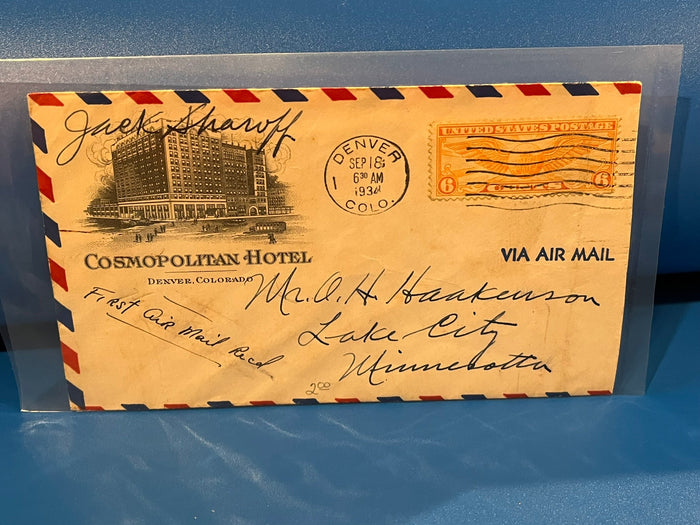 Jack Sharoff
DENVER
SEP 18
6 30 AM
1934
COLO.
1
UNITED STATES POSTAGE
6
6
COSMOPOLITAN HOTEL
DENVER, COLORADO
VIA AIR MAIL
Mr. O. H. Haakenson
Lake City
Minnesotta
First Air Mail Recd
2 00